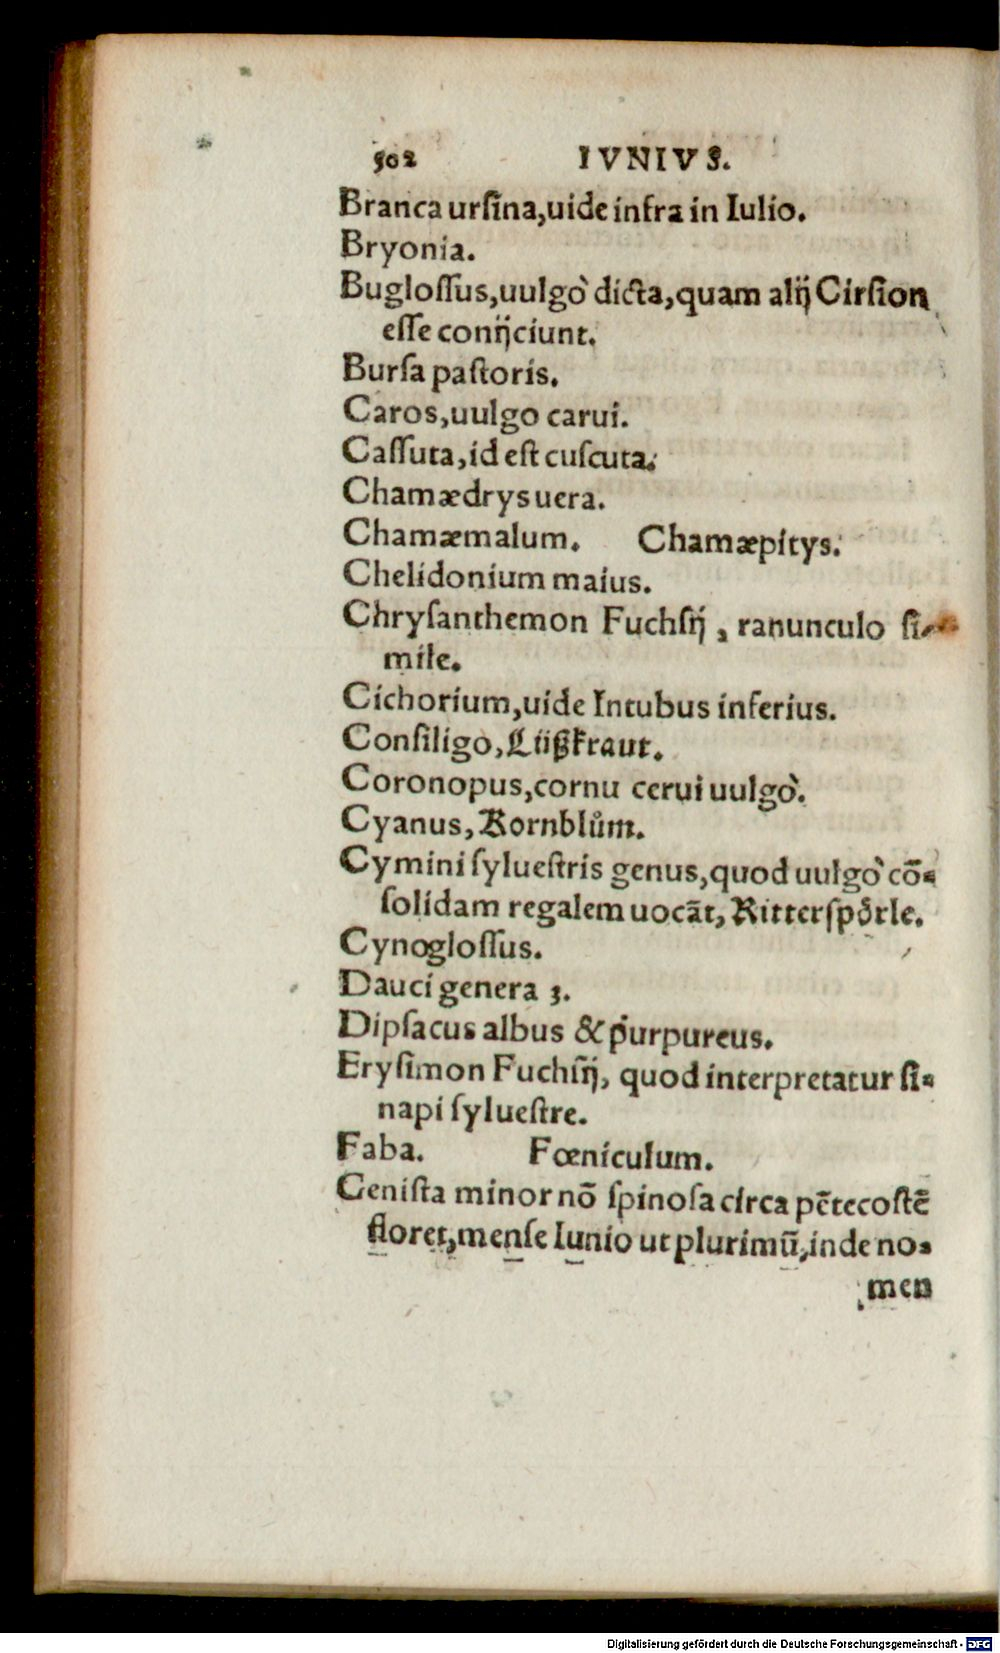 502 IVNIVS.
Branca urſina,uide infra in Iulio.
Bryonia.
Bugloſſus,uulgò dicta,quam alij Cirſion
eſſe conijciunt.
Burſa paſtoris.
Caros,uulgo carui.
Caſſuta,id eſt cuſcuta.
Chamædrys uera.
Chamæmalum. Chamæpitys.
Chelidonium maius.
Chryſanthemon Fuchſij, ranunculo ſi-
mile.
Cichorium,uide Intubus inferius.
Conſiligo,Lüßkraut.
Coronopus,cornu cerui uulgò.
Cyanus,Kornblům.
Cymini ſylueſtris genus,quod uulgò cõ-
ſolidam regalem uocãt,Ritterſpörle.
Cynogloſſus.
Dauci genera 3.
Dipſacus albus & purpureus.
Eryſimon Fuchſij, quod interpretatur ſi-
napi ſylueſtre.
Faba. Fœniculum.
Geniſta minor nõ ſpinoſa circa pẽtecoſtẽ
floret,menſe Iunio ut plurimũ,inde no-
men
Digitalisierung gefördert durch die Deutsche Forschungsgemeinschaft - DFG